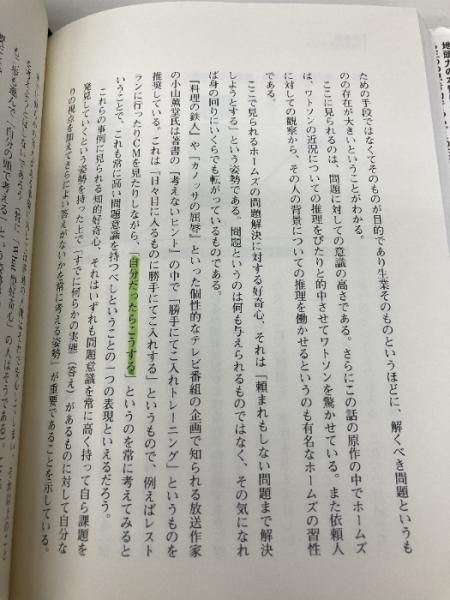 ための手段ではなくてそのものが目的であり生業そのものというほどに、解くべき問題というも
のの存在が大きいということがわかる。
ここに見られるのは、問題に対しての意識の高さである。さらにこの話の原作の中でホームズ
は、ワトソンの近況についての推理をぴたりと的中させてワトソンを驚かせている。また依頼人
に対しての観察から、その人の背景についての推理を働かせるというのも有名なホームズの習性
である。
ここで見られるホームズの問題解決に対する好奇心、それは「頼まれもしない問題まで解決
しようとする」という姿勢である。問題というのは何も与えられるものではなく、その気になれ
ば身の回りにいくらでも転がっているものである。
『料理の鉄人』や『カノッサの屈辱』といった個性的なテレビ番組の企画で知られる放送作家
の小山薫堂氏は著書の『考えないヒント』の中で「勝手にてこ入れトレーニング」というものを
推奨している。これは「日々目に入るものに勝手にてこ入れする」というもので、例えばレスト
ランに行ったりCMを見たりしながら、「自分だったらこうする」というのを常に考えてみると
いうことで、これも常に高い問題意識を持つべしということの一つの表現といえるだろう。
これらの事例に見られる知的好奇心、それはいずれも問題意識を常に高く持って自ら課題を
発見していくという姿勢を持った上で「すでに何らかの実態（答え）があるものに対して自分な
りの視点を加えてさらによい答えがないかを常に考える姿勢」が重要であることを示している。